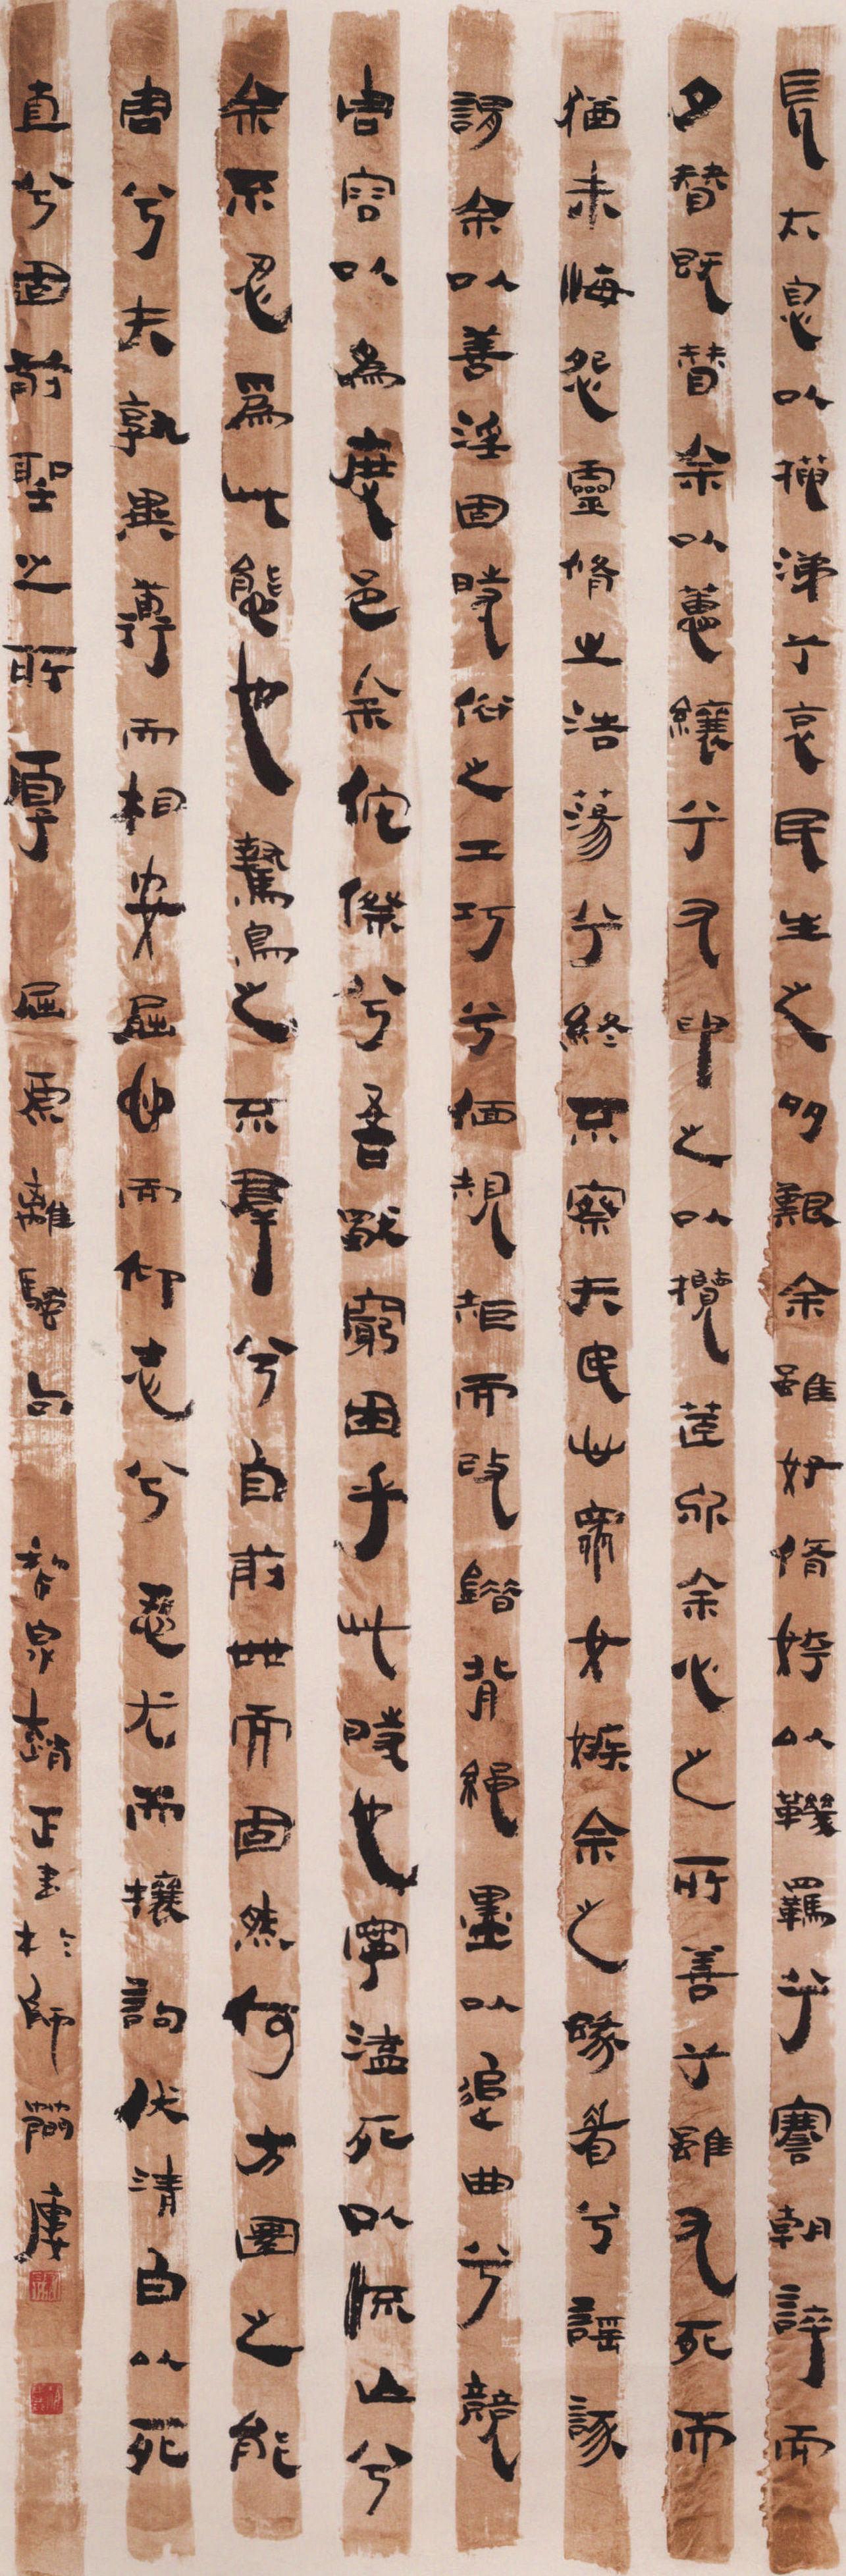 長太息以掩涕兮哀民生之多艱余雖好脩姱以鞿羈兮謇朝誶而
夕替既替余以蕙纕兮又申之以攬茝亦余心之所善兮雖九死而
猶未悔怨靈脩之浩蕩兮終不察夫民心衆女嫉余之蛾眉兮謠諑
謂余以善淫固時俗之工巧兮偭規矩而改錯背繩墨以追曲兮競
周容以為度邑余侘傺兮吾獨窮困乎此時也寧溘死以流亡兮
余不忍爲此態也鷙鳥之不羣兮自前世而固然何方圜之能
周兮夫孰異道而相安屈心而抑志兮忍尤而攘詬伏清白以死
直兮固前聖之所厚 屈原離騷句 正書於師蕳廔